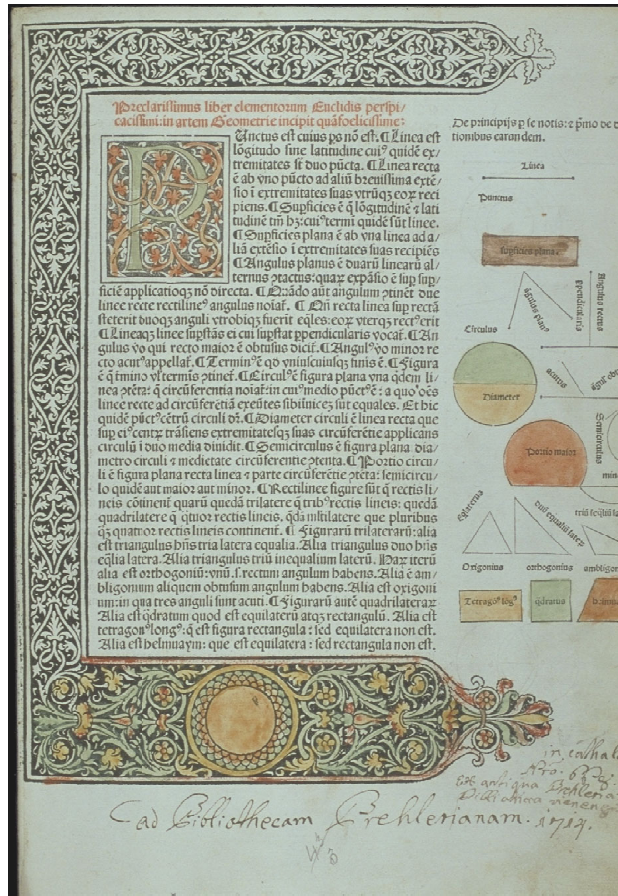 Preclarissimus liber elementorum Euclidis perspi-
cacissimi: in artem Geometrie incipit quãfoelicissime:
Punctus est cuius ps nõ est. ¶ Linea est
lõgitudo sine latitudine cuiꝰ quidẽ ex-
tremitates st duo pũcta. ¶ Linea recta
ẽ ab vno pũcto ad aliũ breuissima extẽ-
sio i extremitates suas vtrũqꝫ eoꝝ reci
piens. ¶ Supficies ẽ q̃ lõgitudinẽ ⁊ lati
tudinẽ tm̃ hꝫ: cuiꝰ termi quidẽ sũt linee.
¶ Supficies plana ẽ ab vna linea ad a-
liã extẽsio i extremitates suas recipiẽs
¶ Angulus planus ẽ duarũ linearũ al-
ternus ꝯtactus: quaꝝ expãsio ẽ sup sup-
ficiẽ applicatioqꝫ nõ directa. ¶ Quãdo aũt angulum ꝯtinẽt due
linee recte rectilineꝰ angulus noiaꞇ̃. ¶ Qñ recta linea sup rectã
steterit duoqꝫ anguli vtrobiqꝫ fuerit eq̃les: eoꝝ vterqꝫ rectꝰ erit
¶ Lineaqꝫ linee supstãs ei cui supstat ppendicularis vocaꞇ̃. ¶ An
gulus vo qui recto maior ẽ obtusus diciꞇ̃. ¶ Angulꝰ vo minor re
cto acutꝰ appellaꞇ̃. ¶ Terminꝰ ẽ qd vniuscuiusqꝫ finis ẽ. ¶ Figura
ẽ q̃ tmino vl terminis ꝯtineꞇ̃. ¶ Circulꝰ ẽ figura plana vna qdem li-
nea ꝯtẽta: q̃ circũferentia noiaꞇ̃: in cuiꝰ medio pũctꝰ ẽ: a quo oẽs
linee recte ad circũferẽtiã exeũtes sibiinuicẽ sũt equales. Et hic
quidẽ pũctꝰ cẽtrũ circuli dꝛ̃. ¶ Diameter circuli ẽ linea recta que
sup eiꝰ centꝝ trãsiens extremitatesqꝫ suas circũferẽtie applicans
circulũ i duo media diuidit. ¶ Semicirculus ẽ figura plana dia-
metro circuli ⁊ medietate circũferentie ꝯtenta. ¶ Portio circu-
li ẽ figura plana recta linea ⁊ parte circũferẽtie ꝯtẽta: semicircu-
lo quidẽ aut maior aut minor. ¶ Rectilinee figure sũt q̃ rectis li-
neis cõtinent quarũ quedã trilatere q̃ tribꝰ rectis lineis: quedã
quadrilatere q̃ qtuor rectis lineis. qdã mltilatere que pluribus
qꝫ quattuor rectis lineis continent. ¶ Figurarũ trilateraꝝ: alia
est triangulus hñs tria latera equalia. Alia triangulus duo hñs
eq̃lia latera. Alia triangulus triũ inequalium laterũ. Haꝝ iterũ
alia est orthogoniũ: vnũ .s. rectum angulum habens. Alia ẽ am-
bligonium aliquem obtusum angulum habens. Alia est oxigoni
um: in qua tres anguli sunt acuti. ¶ Figurarũ autẽ quadrilateraꝝ
Alia est q̃dratum quod est equilaterũ atqꝫ rectangulũ. Alia est
tetragonꝰ longꝰ: q̃ est figura rectangula: sed equilatera non est.
Alia est helmuaym: que est equilatera: sed rectangula non est.
De principijs p se notis: ⁊ pmo de
tionibus earandem.
Linea
Punctus
supficies plana.
Circulus
Diameter
acutus
Portio maior
Oxigonius
orthogonius
Tetragonꝰ lõgꝰ
q̃dratus
ad Bibliothecam Prehlerianam. 1714.